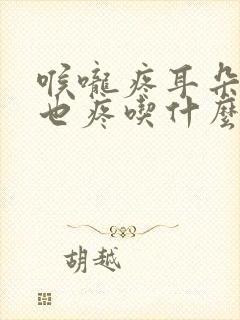 喉嚨疼耳朵
也疼喫什麼
胡越